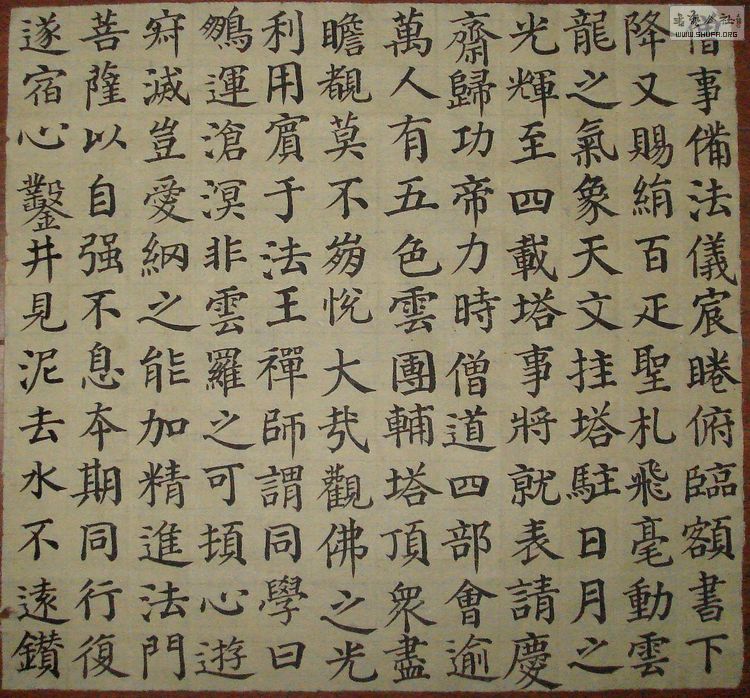 僧事備法儀宸睠俯臨額書下
降又賜絹百疋聖札飛毫動雲
龍之氣象天文挂塔駐日月之
光輝至四載塔事將就表請慶
齋歸功帝力時僧道四部會逾
萬人有五色雲團輔塔頂衆盡
瞻覩莫不崩悅大哉觀佛之光
利用賓于法王禪師謂同學曰
鵬運滄溟非雲羅之可頓心遊
寂滅豈愛網之能加精進法門
菩薩以自强不息本期同行復
遂宿心鑿井見泥去水不遠鑽
WWW.SHUFA.ORG